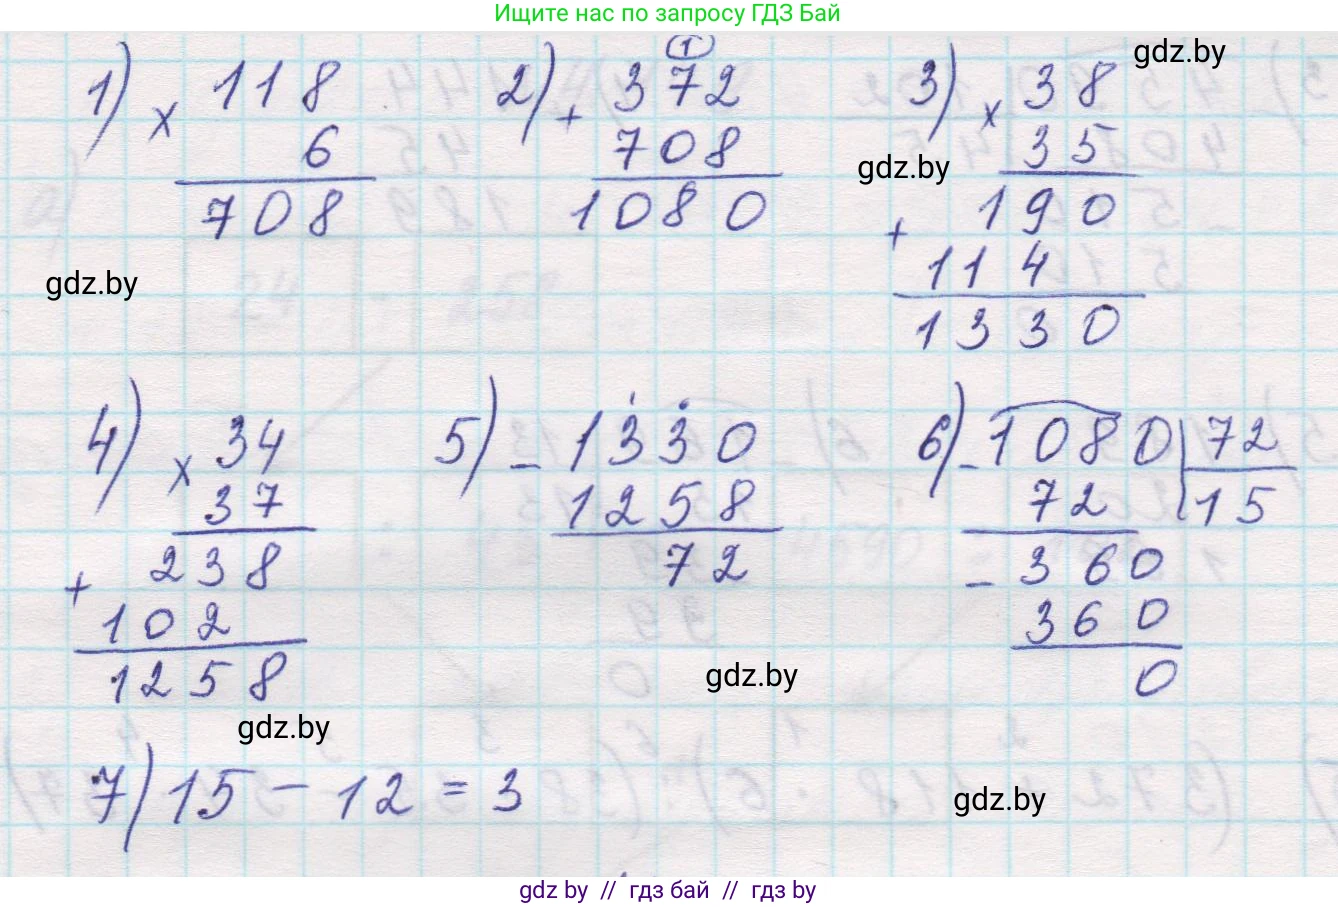 Ищите нас по запросу ГДЗ Бай
gdz.by
1) × 118
6
708
2) + 372
1
708
1080
3) × 38
35
190
+ 114
1330
gdz.by
gdz.by
4) × 34
37
238
+ 102
1258
5) - 1330
1258
72
6) - 1080 | 72
72 | 15
- 360
360
0
gdz.by
gdz.by
7) 15 - 12 = 3
gdz.by
gdz by // гдз бай // гдз by